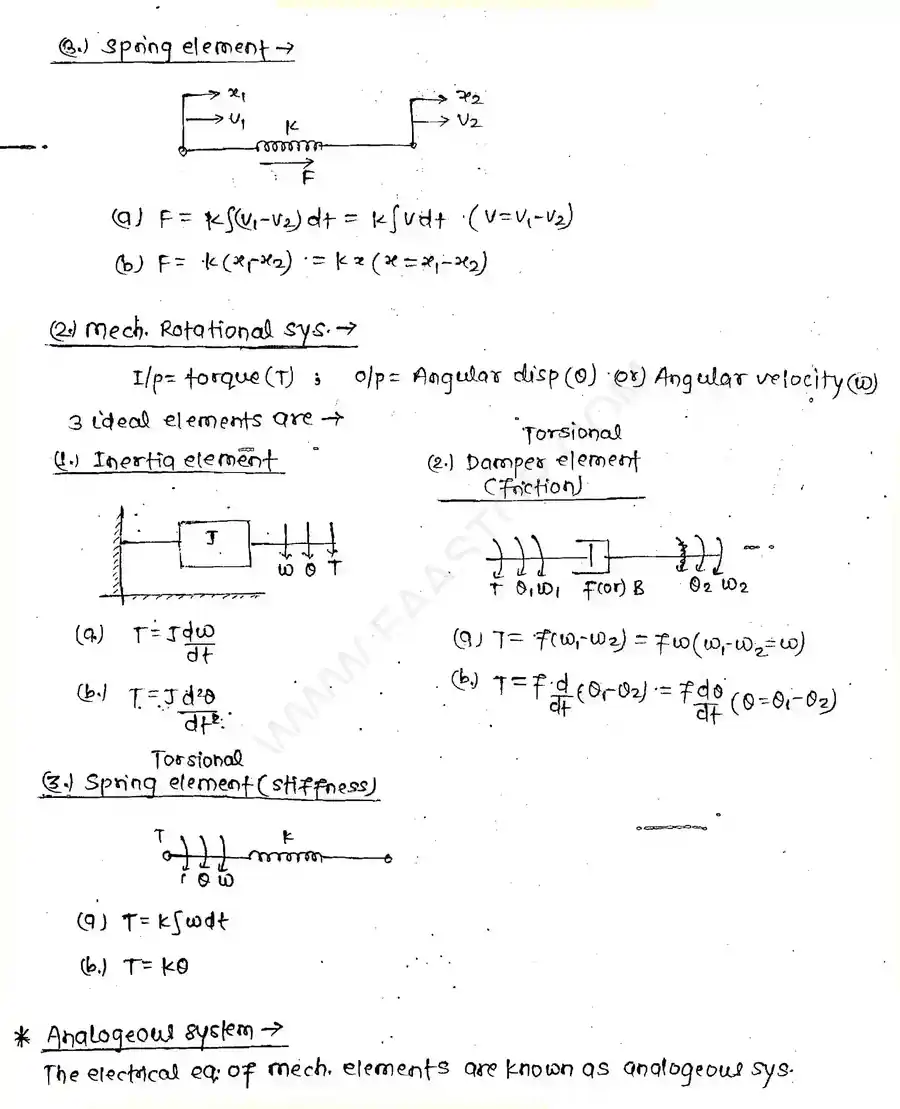 (3.) Spring element →
x1
v1
K
x2
v2
F
(a) F = K∫(v1-v2)dt = K∫vdt (v=v1-v2)
(b) F = k(x1-x2) = kx (x=x1-x2)
(2.) Mech. Rotational sys. →
I/p = torque(T) ; o/p = Angular disp(θ) (or) Angular velocity(ω)
3 ideal elements are →
(1.) Inertia element
J
ω θ T
(a) T = J dω/dt
(b.) T = J d²θ/dt²
Torsional
(2.) Damper element
(friction)
T θ1 ω1 f(or) B θ2 ω2
(a) T = f(ω1-ω2) = fω(ω1-ω2=ω)
(b.) T = f d/dt (θ1-θ2) = f dθ/dt (θ=θ1-θ2)
Torsional
(3.) Spring element (stiffness)
T
K
T θ ω
(a) T = K∫ωdt
(b.) T = Kθ
* Analogeous system →
The electrical eq. of mech. elements are known as analogeous sys.